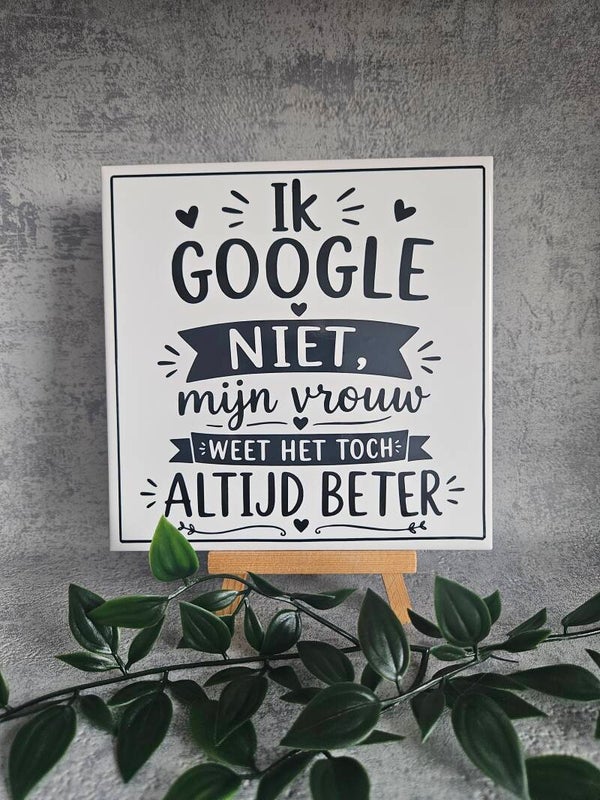 Ik
GOOGLE
NIET,
mijn vrouw
WEET HET TOCH
ALTIJD BETER